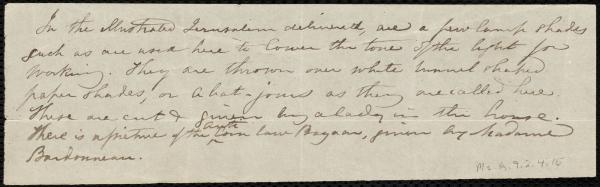 In the illustrated Jerusalem delivered, are a few lamp shades
such as are used here to lower the tone of the light for
working. They are thrown over white tunnel shaped
paper shades, or abat-jours as they are called here.
These are cut & given by a lady in the house.
There is a picture of the ^ anti corn law Bazaar, given by Madame
Bardonneau.
Ms. A. 9. 2. 4. 15